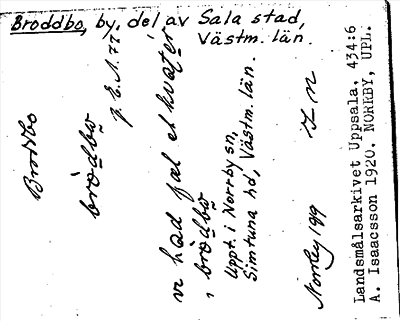 Broddbo, by, del av Sala stad,
Västm. län.
Broddbo
bròdbω
vi had fal el kvater
i bròdbω
Uppt. i Norrby sn,
Simtuna hd, Västm. län.
Norrby 199
Landsmålsarkivet Uppsala, 434:6
A. Isaacsson 1920. NORRBY, UPL.